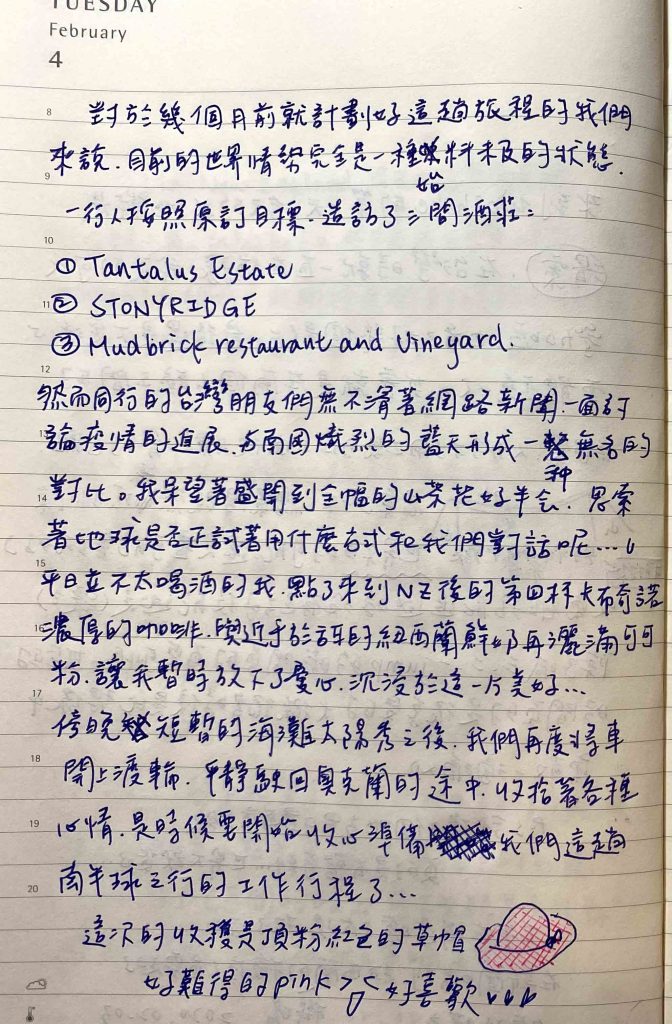 TUESDAY
February
4
8
對於幾個月前就計劃好這趟旅程的我們
來說、目前的世界情勢完全是一種始料未及的狀態、
9
一行人按照原訂目標、造訪了三間酒莊：
10
① Tantalus Estate
11
② STONYRIDGE
③ Mudbrick restaurant and Vineyard.
12
然而同行的台灣朋友們無不滑著網路新聞、一面討
論疫情的進展、与南國熾烈的藍天形成一种無名的
14
對比。我呆望著盛開到全幅的山茶花好半会、思索
著地球是否正試著用什麼方式和我們對話呢...。
15
平日並不太喝酒的我、點了來到NZ後的第四杯卡布奇諾
16
濃厚的咖啡、與近乎於的紐西蘭鮮奶再灑滿可可
粉、讓我暫時放下了憂心、沉浸於這一片美好...
17
傍晚短暫的海灘太陽秀之後、我們再度將車
18
開上渡輪、平靜駛回奧克蘭的途中、收拾著各種
19
心情、是時候要開始收心準備我們這趟
南半球之行的工作行程了...
20
這次的收穫是頂粉紅色的草帽
好難得的pink >< 好喜歡